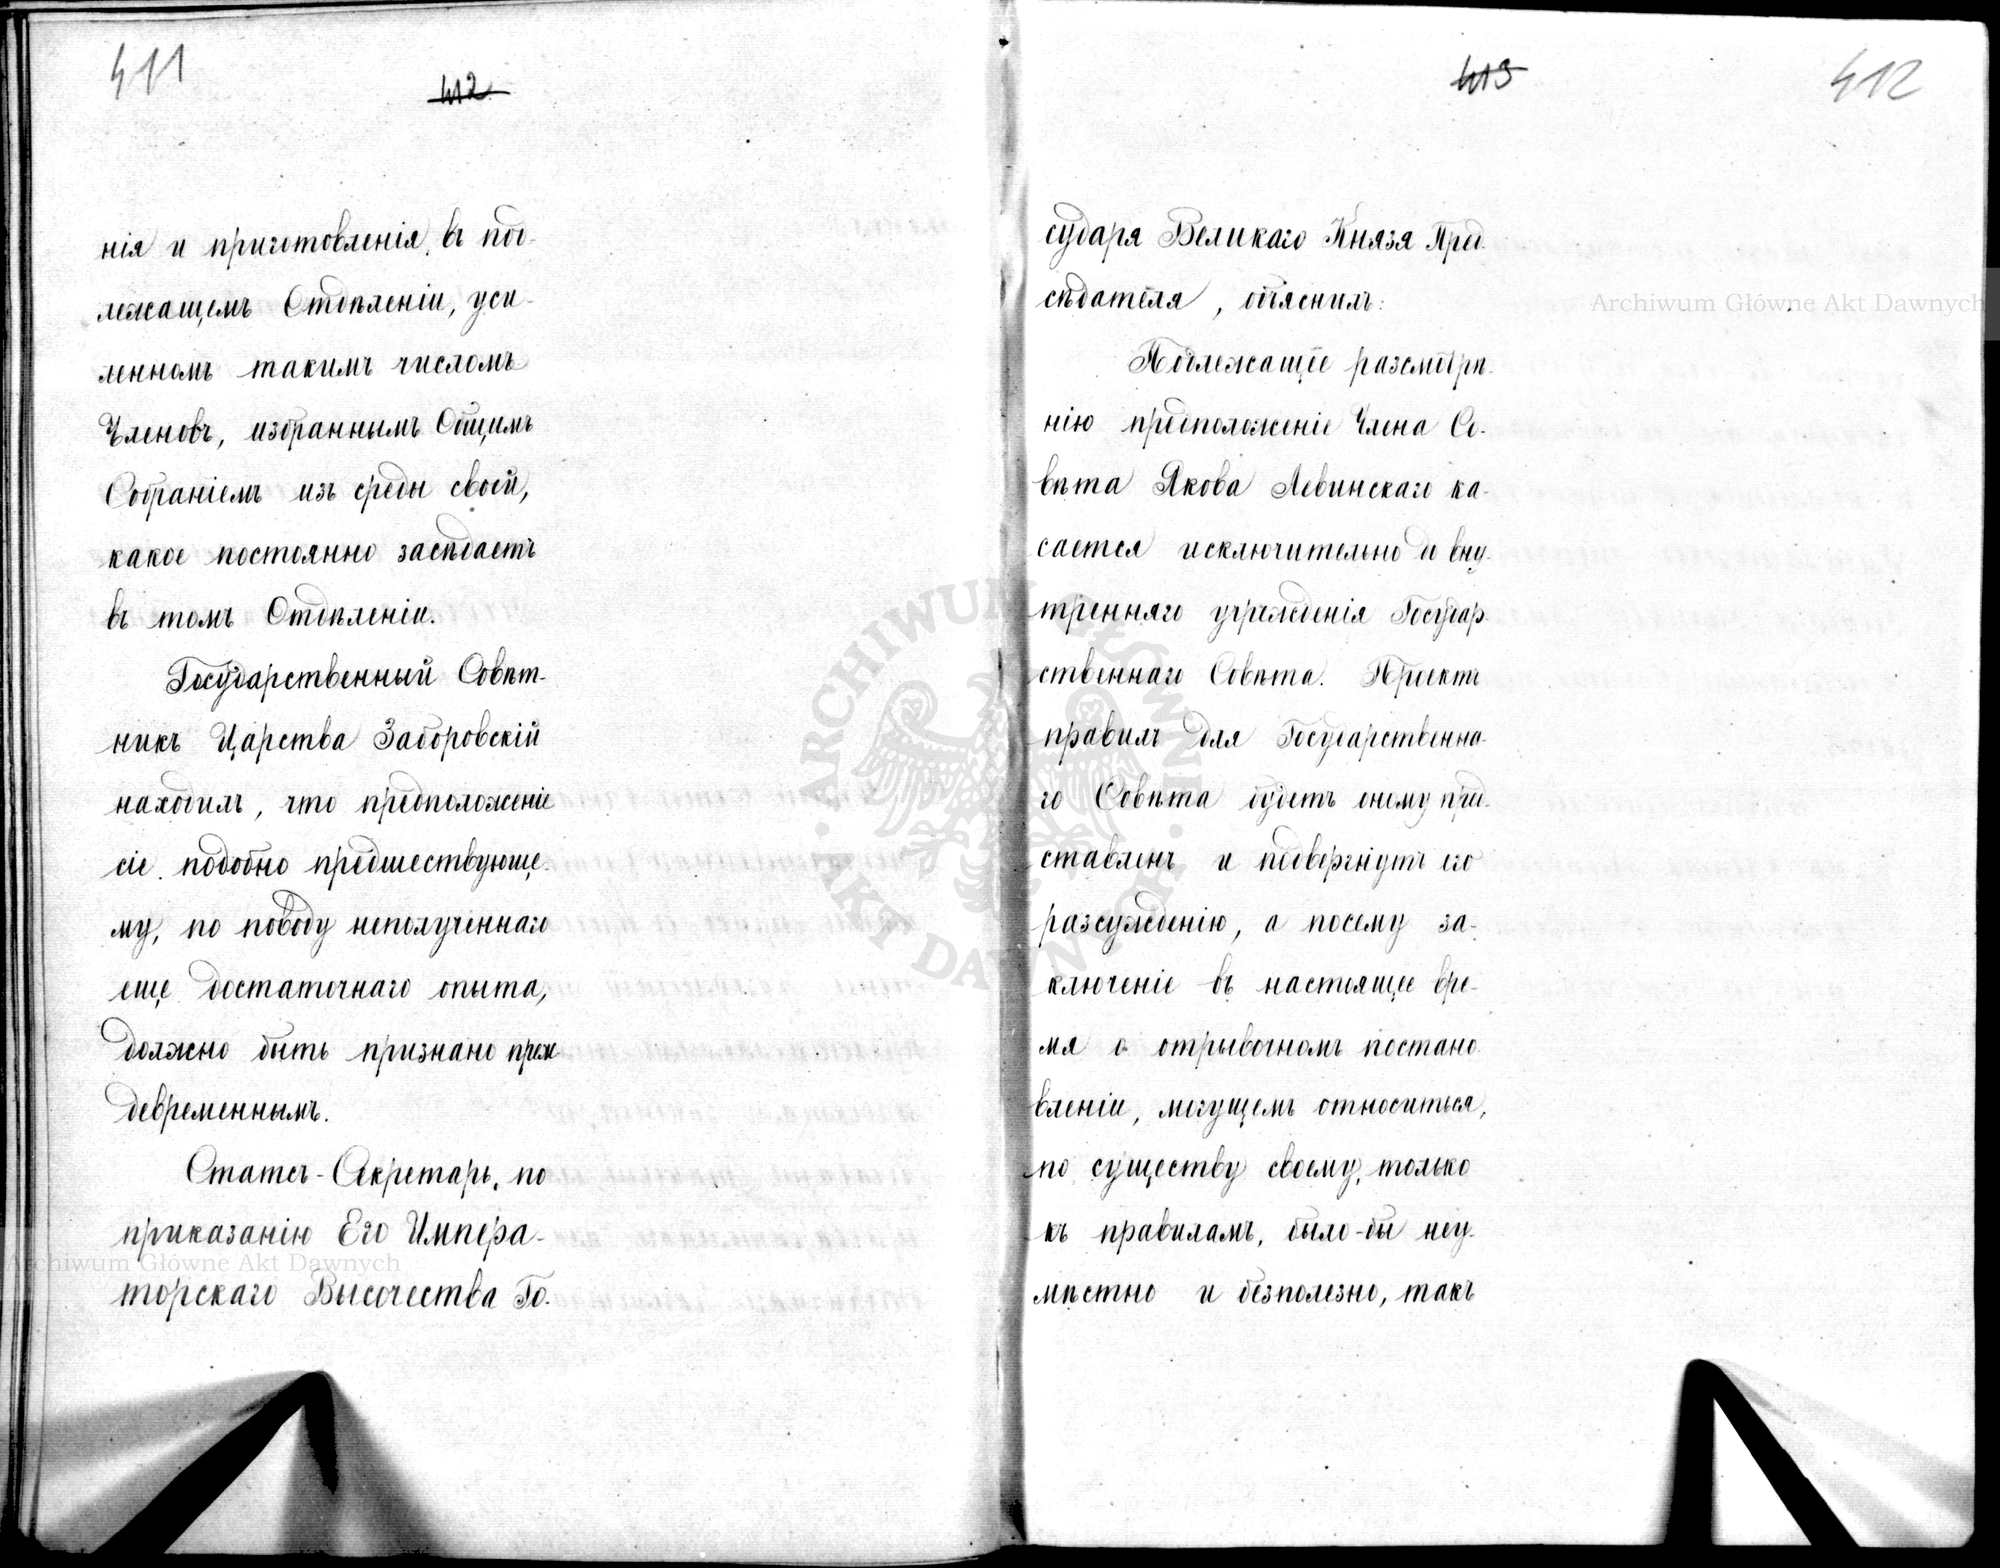 411
412
нія и приготовленія, въ под-
лежащемъ Отдѣленіи, уси-
ленномъ такимъ числомъ
Членовъ, избраннымъ Общимъ
Собраніемъ изъ среды своей,
какое постоянно засѣдаетъ
въ томъ Отдѣленіи.
Государственный Совѣт-
никъ Царства Заборовскій
находилъ, что предположеніе
сіе подобно предшествующе-
му, по поводу неполученнаго
еще достаточнаго опыта,
должно быть признано преж-
девременнымъ.
Статсъ-Секретарь, по
приказанію Его Импера-
торскаго Высочества Го-
413
412
сударя Великаго Князя Пред-
сѣдателя, объяснилъ:
Подлежащее разсмотрѣ-
нію предположеніе Члена Со-
вѣта Якова Левинскаго ка-
сается исключительно до вну-
тренняго учрежденія Государ-
ственнаго Совѣта. Проектъ
правилъ для Государственна-
го Совѣта будетъ оному пред-
ставленъ и подвергнутъ его
разсужденію, а посему за-
ключеніе въ настоящее вре-
мя о отрывочномъ постано-
вленіи, могущемъ относиться,
по существу своему, только
къ правиламъ, было-бы неу-
мѣстно и безполезно, такъ
Archiwum Główne Akt Dawnych
Archiwum Główne Akt Dawnych
ARCHIWUM GŁÓWNE · AKT DAWNYCH ·